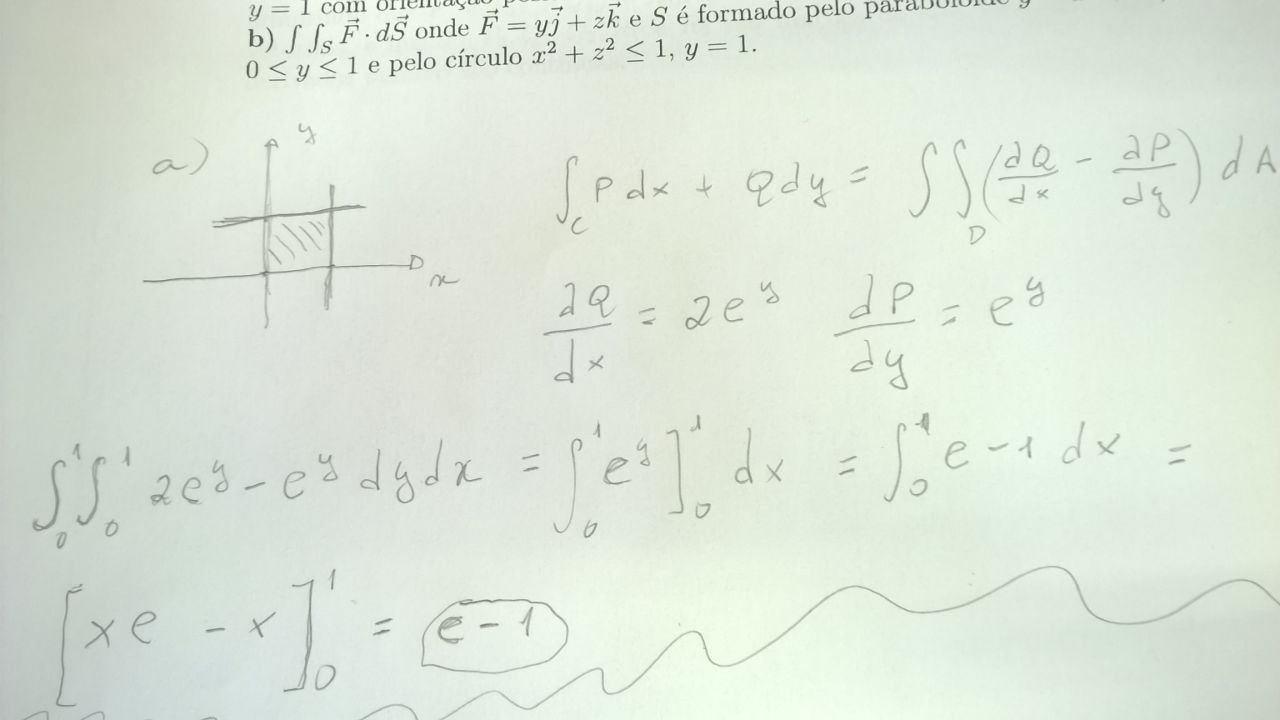 y = 1 com orientação
b) ∫∫_S F⃗ · dS⃗ onde F⃗ = yj⃗ + zk⃗ e S é formado pelo paraboloide y
0 ≤ y ≤ 1 e pelo círculo x² + z² ≤ 1, y = 1.
a) y x
∫_C P dx + Q dy = ∫∫_D (∂Q/dx - ∂P/dy) dA
∂Q/dx = 2e^y dP/dy = e^y
∫_0^1 ∫_0^1 2e^y - e^y dy dx = ∫_0^1 e^y ]_0^1 dx = ∫_0^1 e - 1 dx =
[xe - x]_0^1 = e - 1